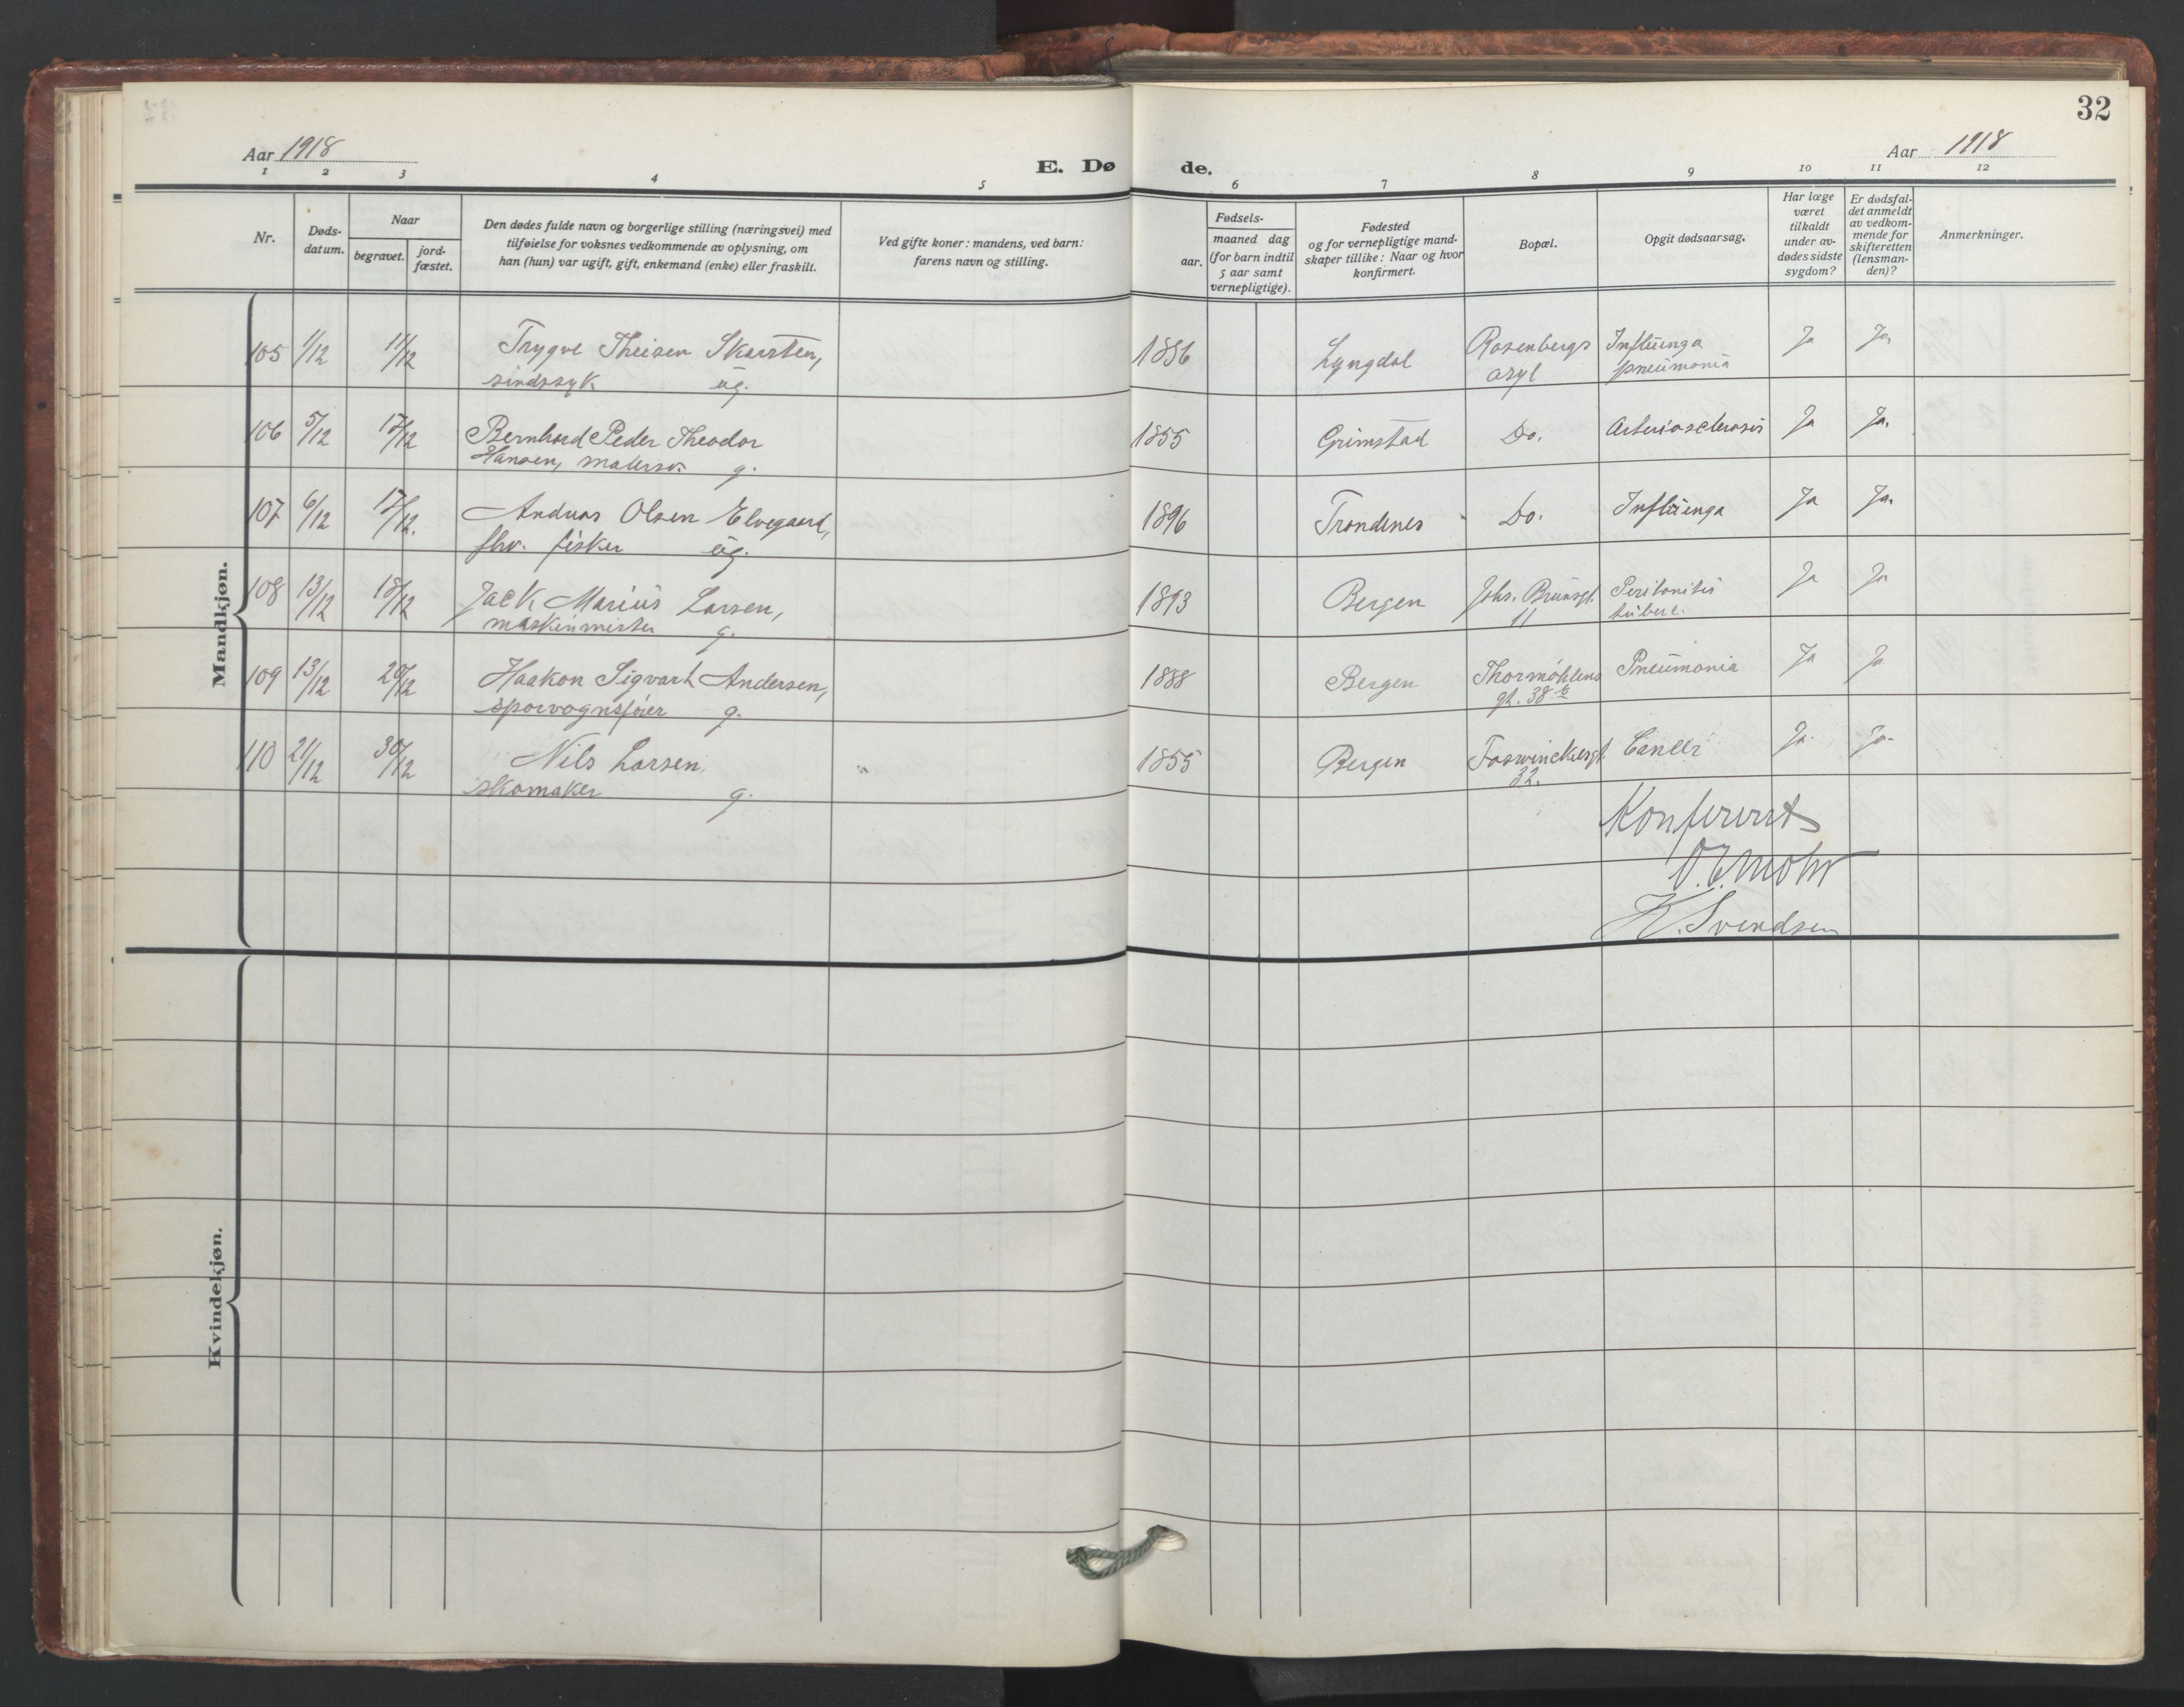 32
Aar 1918
E. Dø
de.
Aar 1918
1 2 3 4 5 6 7 8 9 10 11 12
Nr.
Døds-
datum.
Naar
begravet.
jord-
fæstet.
Den dødes fulde navn og borgerlige stilling (næringsvei) med
tilføielse for voksnes vedkommende av oplysning, om
han (hun) var ugift, gift, enkemand (enke) eller fraskilt.
Ved gifte koner: mandens, ved barn:
farens navn og stilling.
Fødsels-
aar.
maaned dag
(for barn indtil
5 aar samt
vernepligtige).
Fødested
og for vernepligtige mand-
skaper tillike: Naar og hvor
konfirmert.
Bopæl.
Opgit dødsaarsag.
Har læge
været
tilkaldt
under av-
dødes sidste
sygdom?
Er dødsfal-
det anmeldt
av vedkom-
mende for
skifteretten
(lensman-
den)?
Anmerkninger.
Mandkjøn.
105 1/12 11/12 Trygve Theisen Skarsten, 1886 Lyngdal Rosenbergs Influenza Ja Ja
sindssyk ug. asyl pneumonia
106 5/12 17/12 Bernhard Peder Theodor 1855 Grimstad Do. Arteriosclerosis Ja Ja.
Hansen, malersv. g.
107 6/12 17/12. Andreas Olsen Elvegaard, 1896 Trondenes Do. Influenza Ja Ja.
fhv. fisker ug.
108 13/12 18/12 Jack Marius Larsen, 1893 Bergen Johs. Brunsgt. Peritonitis Ja Ja
maskinmister g. 11 tuberc.
109 13/12 20/12 Haakon Sigvart Andersen, 1888 Bergen Thormöhlens Pneumonia Ja Ja
sporvognsfører g. gt. 38
110 21/12 30/12 Nils Larsen, 1855 Bergen Foswinckelsgt. Cancer Ja. Ja.
skomaker g. 32.
Konferert
O.E. Mohr
K. Svendsen
Kvindekjøn.